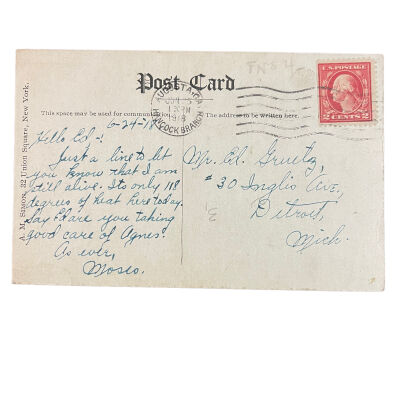 Post Card
This space may be used for communication
The address to be written here.
A. M. SIMON, 32 Union Square, New York.
U.S. POSTAGE
2 CENTS 2
AUGUSTA, GA.
1918
HANCOCK BRANCH
6-24-18
Hello Ed-:
Just a line to let
you know that I am
still alive. Its only 118
degrees of heat here today.
Say Ed are you taking
good care of Agnes.
As ever,
Moses.
Mr. Ed. Gruetz,
#30 Inglis Ave,
Detroit,
Mich.